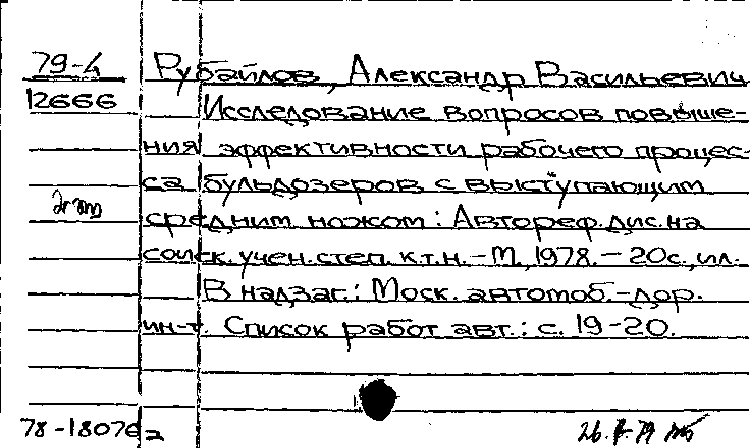 79-4 Рубайлов, Александр Васильевич
12666 Исследование вопросов повыше-
ния эффективности рабочего процес-
са бульдозеров с выступающим
средним ножом: Автореф. дис. на
соиск. учен. степ. к.т.н. - М, 1978. - 20с., ил.
В надзаг.: Моск. автомоб.-дор.
ин-т. Список работ авт.: с. 19-20.
78-18076а